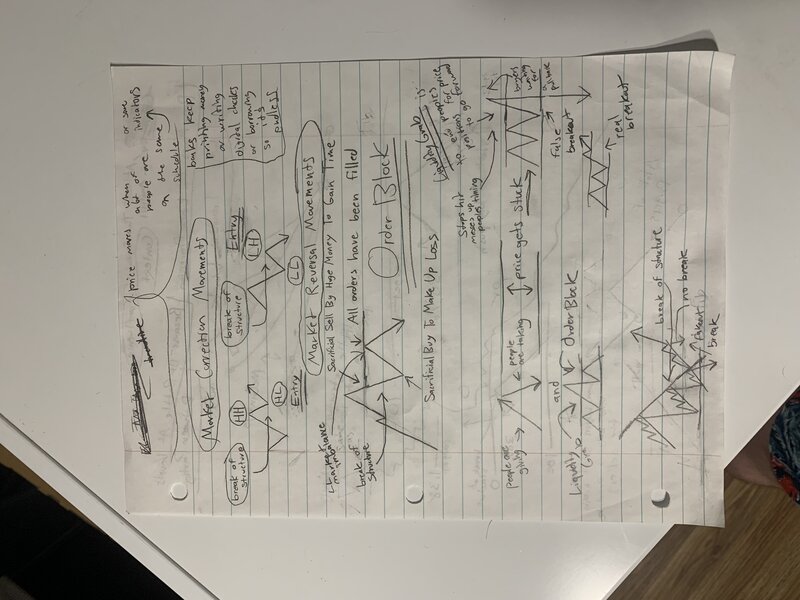 price moves when
a lot of
people are
on the same
schedule
or same
indicators
banks keep
printing money
or writing
digital checks
or borrowing
so its
endless
Market Correction Movements
break of
structure
HH
HL
Entry
break of
structure
Entry
LH
LL
Market Reversal Movements
Sacrificial Sell By Huge Money To Gain Time
market
imbalance
break of
structure
All orders have been filled
Order Block
Sacrificial Buy To Make Up Loss
Liquidity Grab is
peoples
positions for price
to go forward
Stops hit
messes up
peoples timing
People are
giving
people
are taking
price gets stuck
buyers
waiting
for
a
false
breakout
real
breakout
Liquidity
Grab
and
Order Block
break of structure
no break
fakeout
break